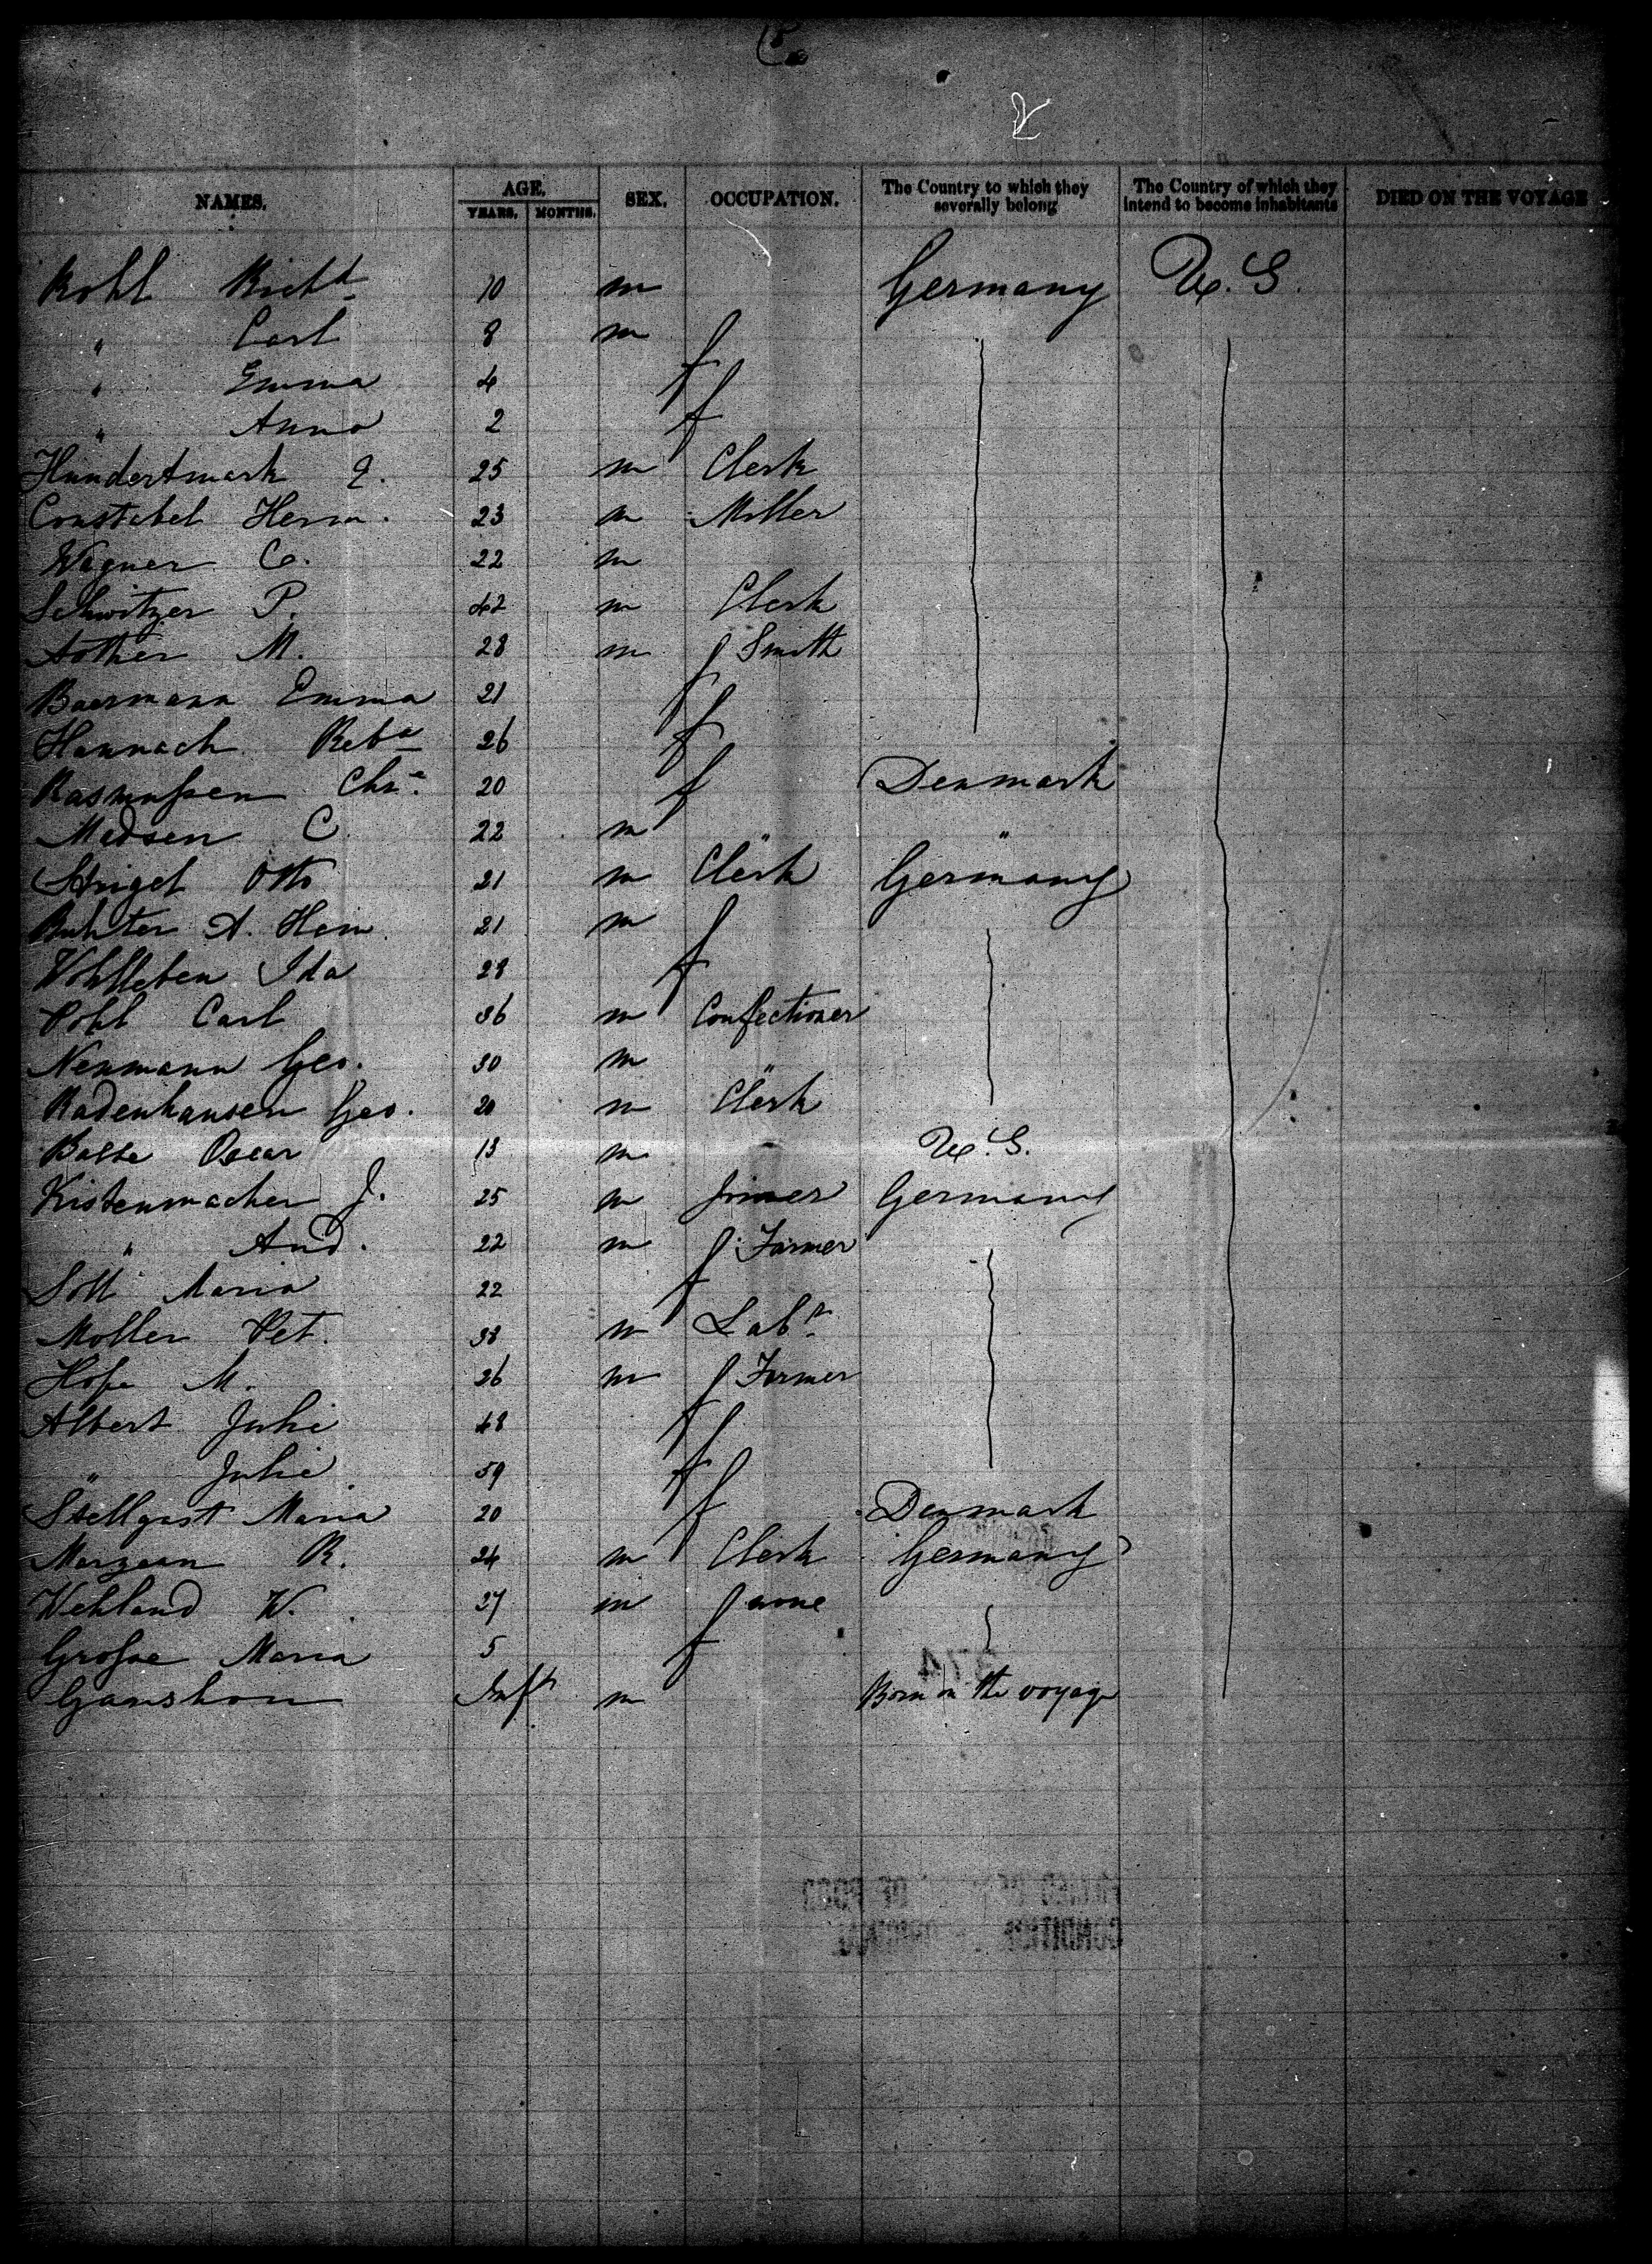 NAMES. AGE. YEARS. MONTHS. SEX. OCCUPATION. The Country to which they severally belong The Country of which they intend to become inhabitants DIED ON THE VOYAGE
Kohl Richd 10 m Germany U.S.
" Carl 8 m
" Emma 4 f
" Anna 2 f
Hundertmark J. 25 m Clerk
Constabel Herm. 23 m Miller
Wagner C. 22 m
Schwitzer P. 42 m Clerk
Rother M. 28 m Smith
Baermann Emma 21 f
Hannach Reba 26 f
Rasmussen Chr.e 20 f Denmark
Madsen C 22 m "
Striget Otto 21 m Clerk Germany
Buhter A. Hein. 21 m
Wohlleben Ida 28 f
Pohl Carl 36 m Confectioner
Neumann Geo. 30 m "
Radenhausen Geo. 20 m Clerk
Balte Oscar 13 m U.S.
Kistenmacher J. 25 m Joiner Germany
" And. 22 m Farmer
Soll Maria 22 f
Moller Pet. 38 m Labr
Hope M. 26 m Farmer
Albert Julie 48 f
" Julie 59 f
Stellgast Maria 20 f Denmark
Marzaan R. 24 m Clerk Germany
Wehland W. 27 m none
Grosse Maria 5 f
374
Ganshorn Inft m Born on the voyage